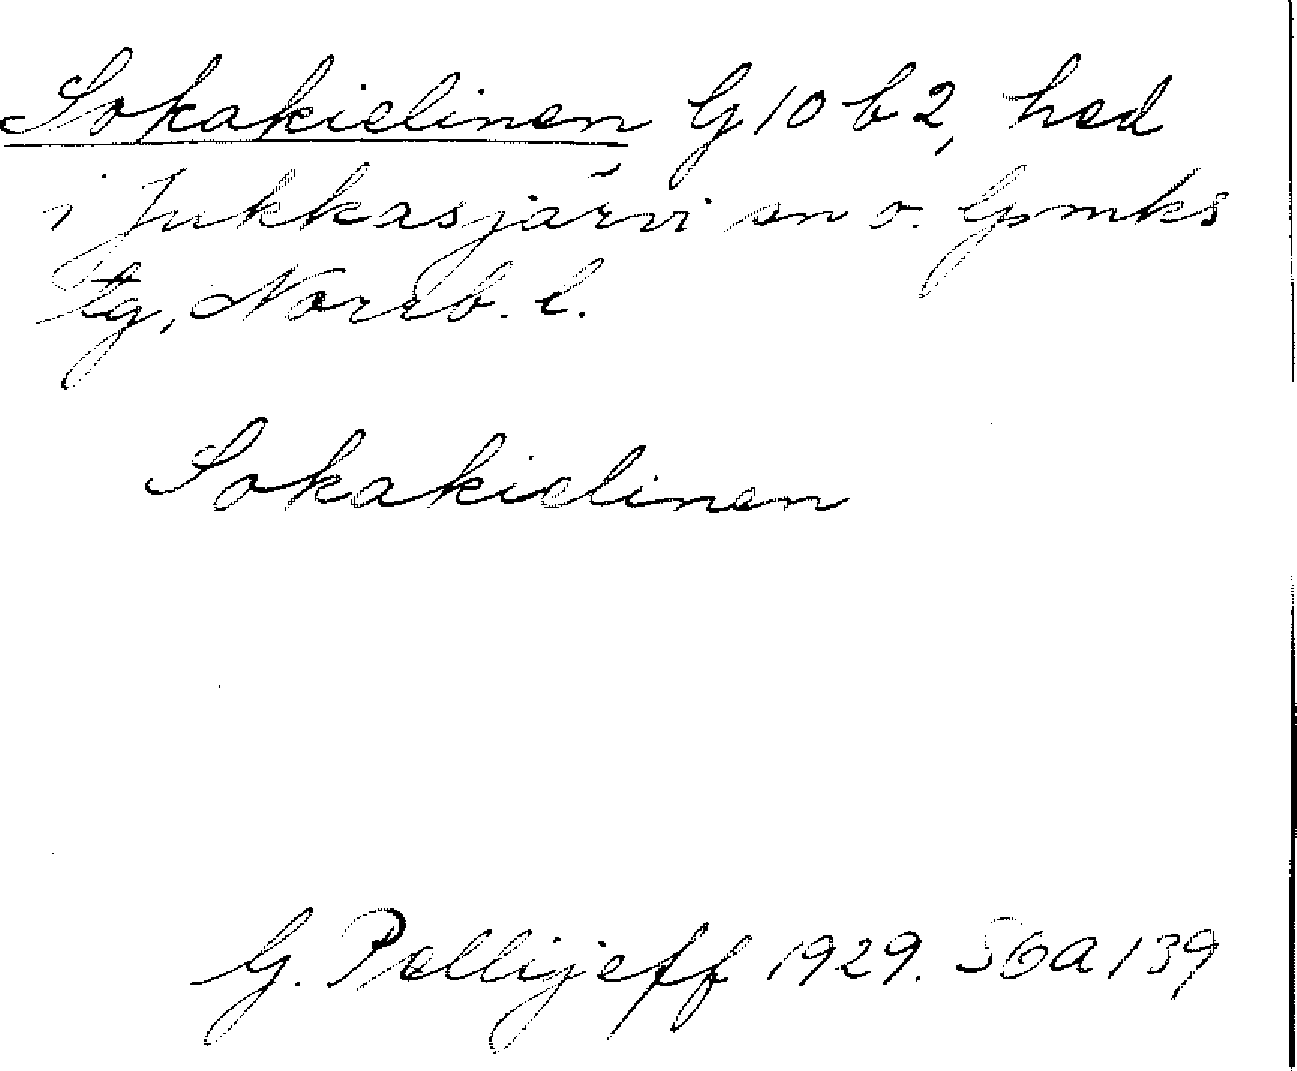 Sokakielinen G 10 b 2, hed
i Jukkasjärvi sn o. Gmks
tg, Norrb. l.
Sokakielinen
G. Pellijeff 1929. SOA 139